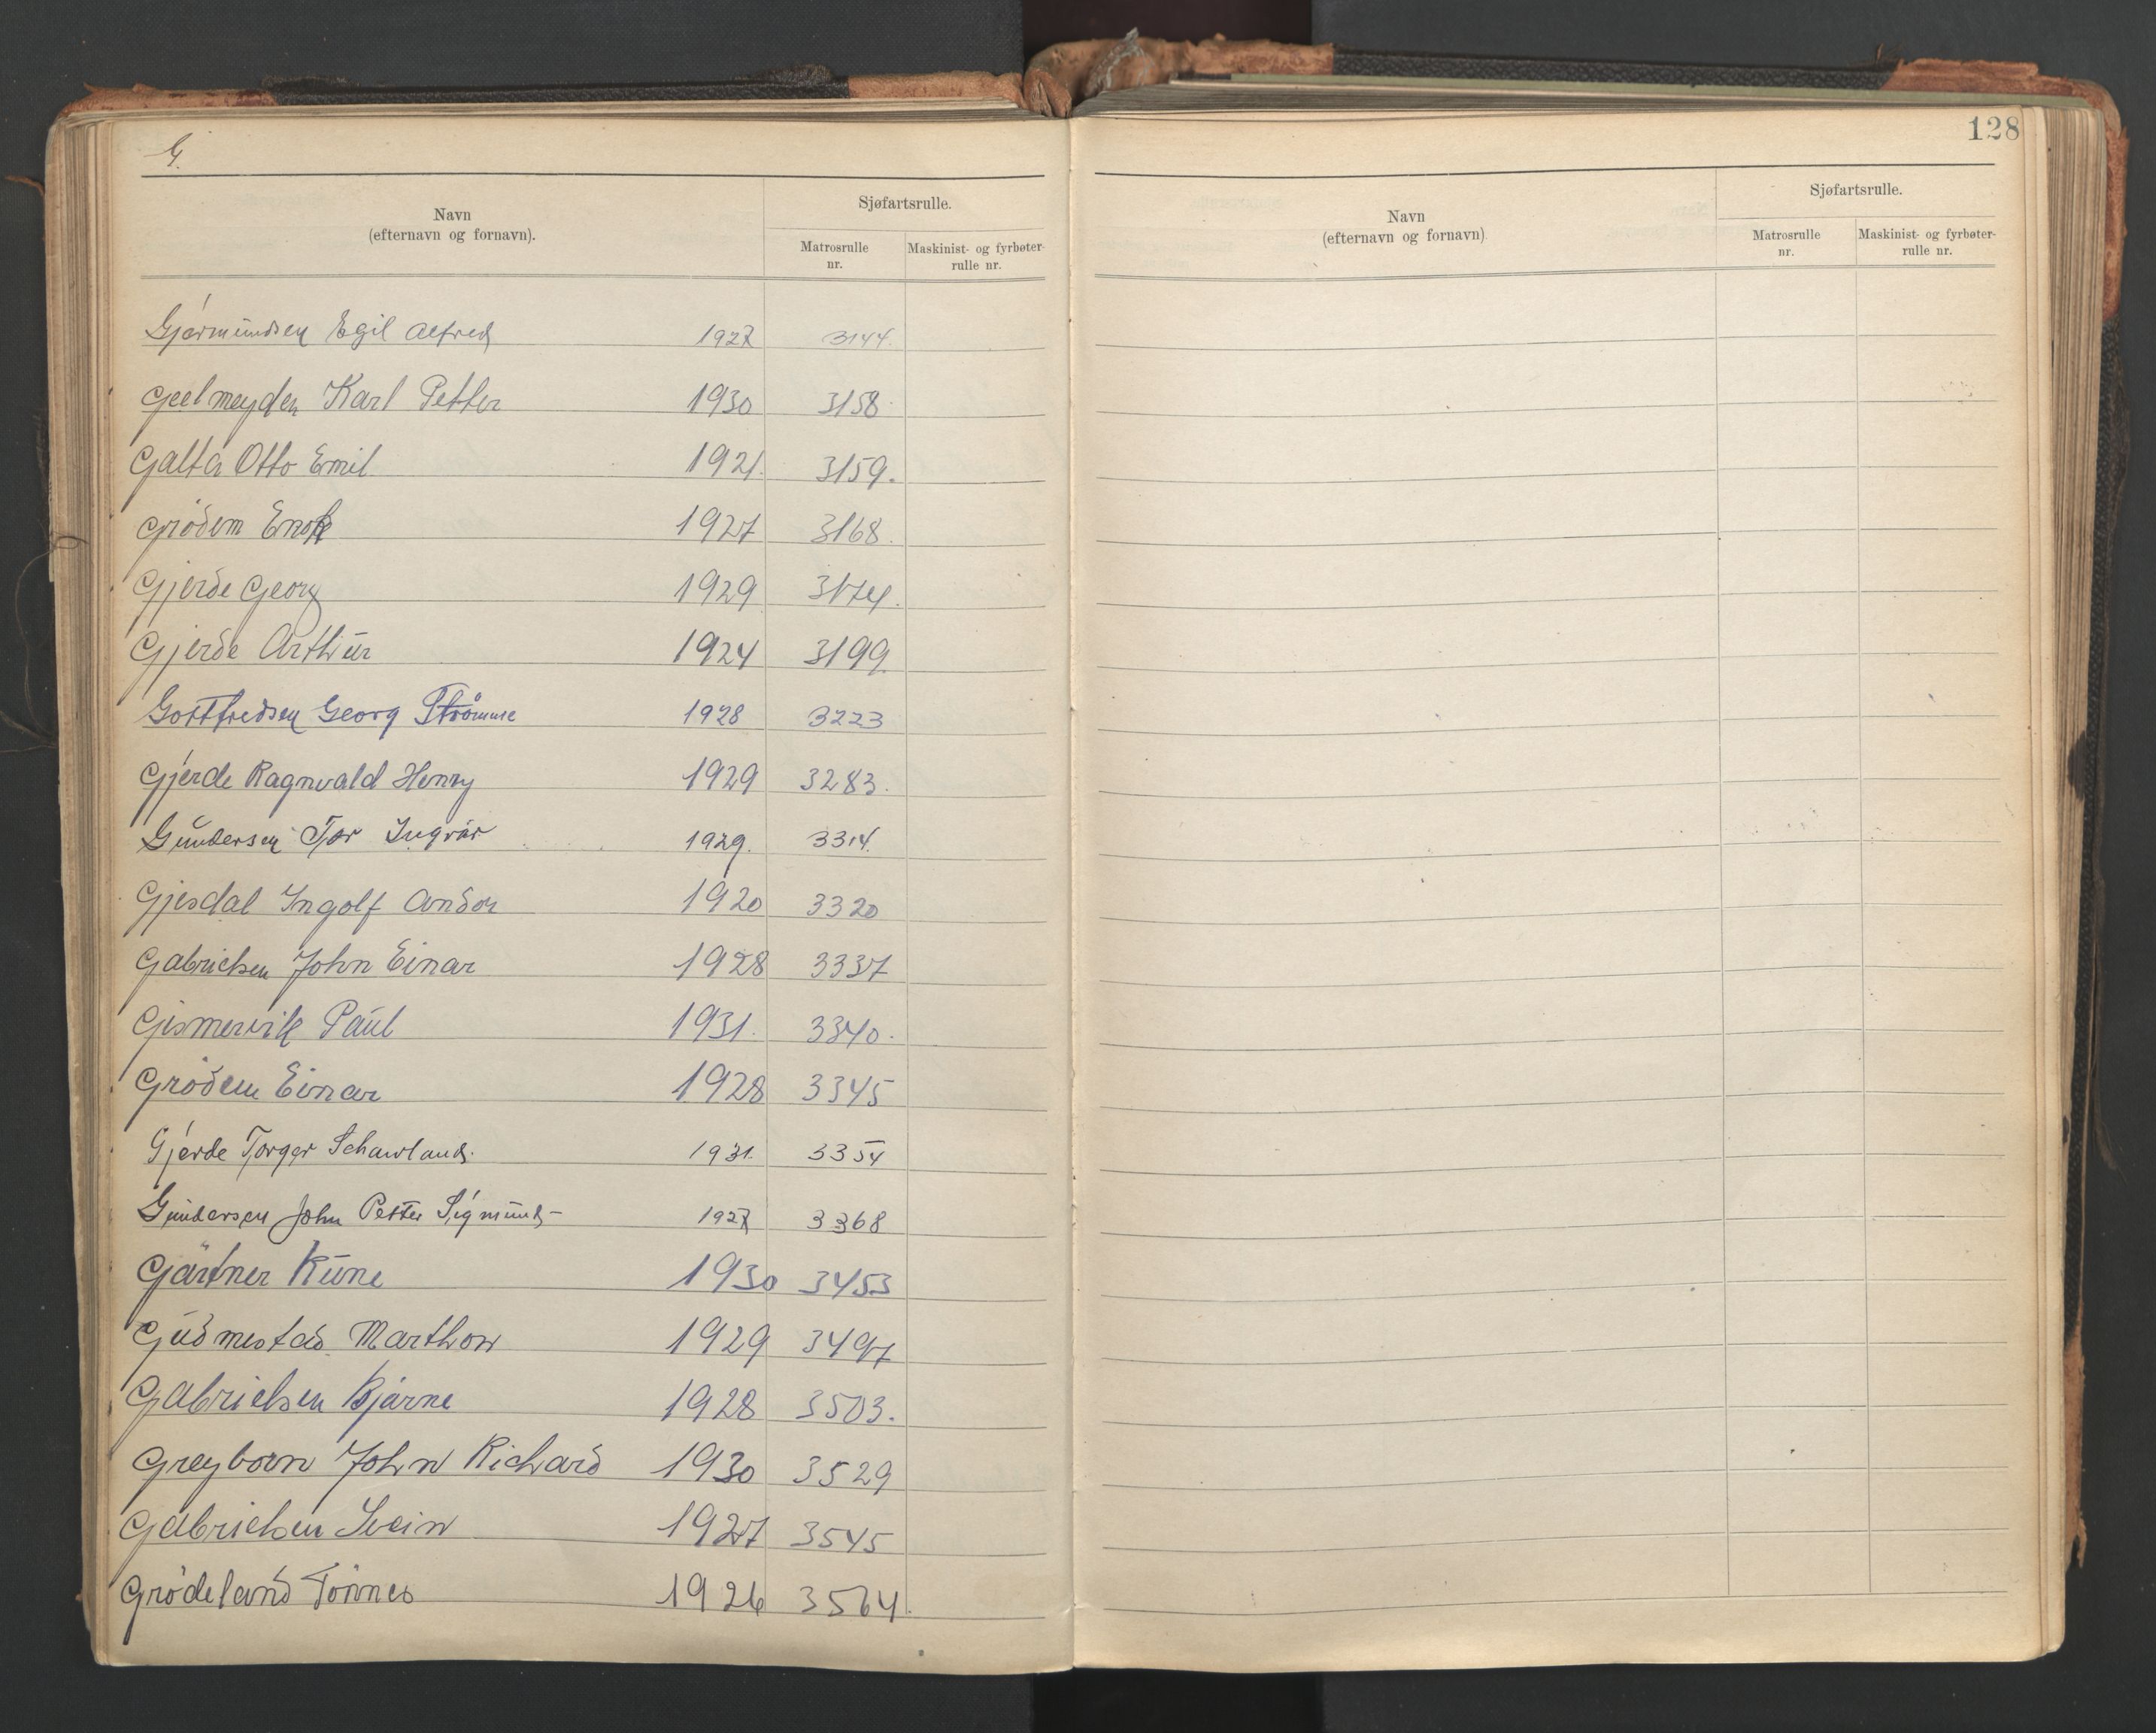 G.
Navn
(efternavn og fornavn).
Sjøfartsrulle.
Matrosrulle nr.
Maskinist- og fyrbøter-rulle nr.
Gjermundsen Egil Alfred 1927 3144.
Geelmeyden Karl Petter 1930 3158
Galta Otto Emil 1921. 3159.
Grödem Enok 1927 3168.
Gjerde Georg 1929 3174.
Gjerde Arthur 1924 3199.
Gottfredsen Georg Strömme 1928 3223
Gjerde Ragnvald Henry 1929 3283.
Gundersen Tor Ingvar 1929. 3314.
Gjesdal Ingolf Andor 1920 3320
Gabrielsen John Einar 1928 3337
Gismervik Paul 1931. 3340.
Grödem Einar 1928 3345
Gjerde Torger Schawland. 1931. 3354
Gundersen John Petter Sigmund- 1927 3368
Gärtner Rune 1930 3453
Gudmestad Marthon 1929 3497
Gabrielsen Bjarne 1928 3503.
Greyborn John Richard 1930 3529
Gabrielsen Svein 1927 3545
Grödeland Tönnes 1926 3564.
128
Navn
(efternavn og fornavn)
Sjøfartsrulle.
Matrosrulle nr.
Maskinist- og fyrbøter-rulle nr.